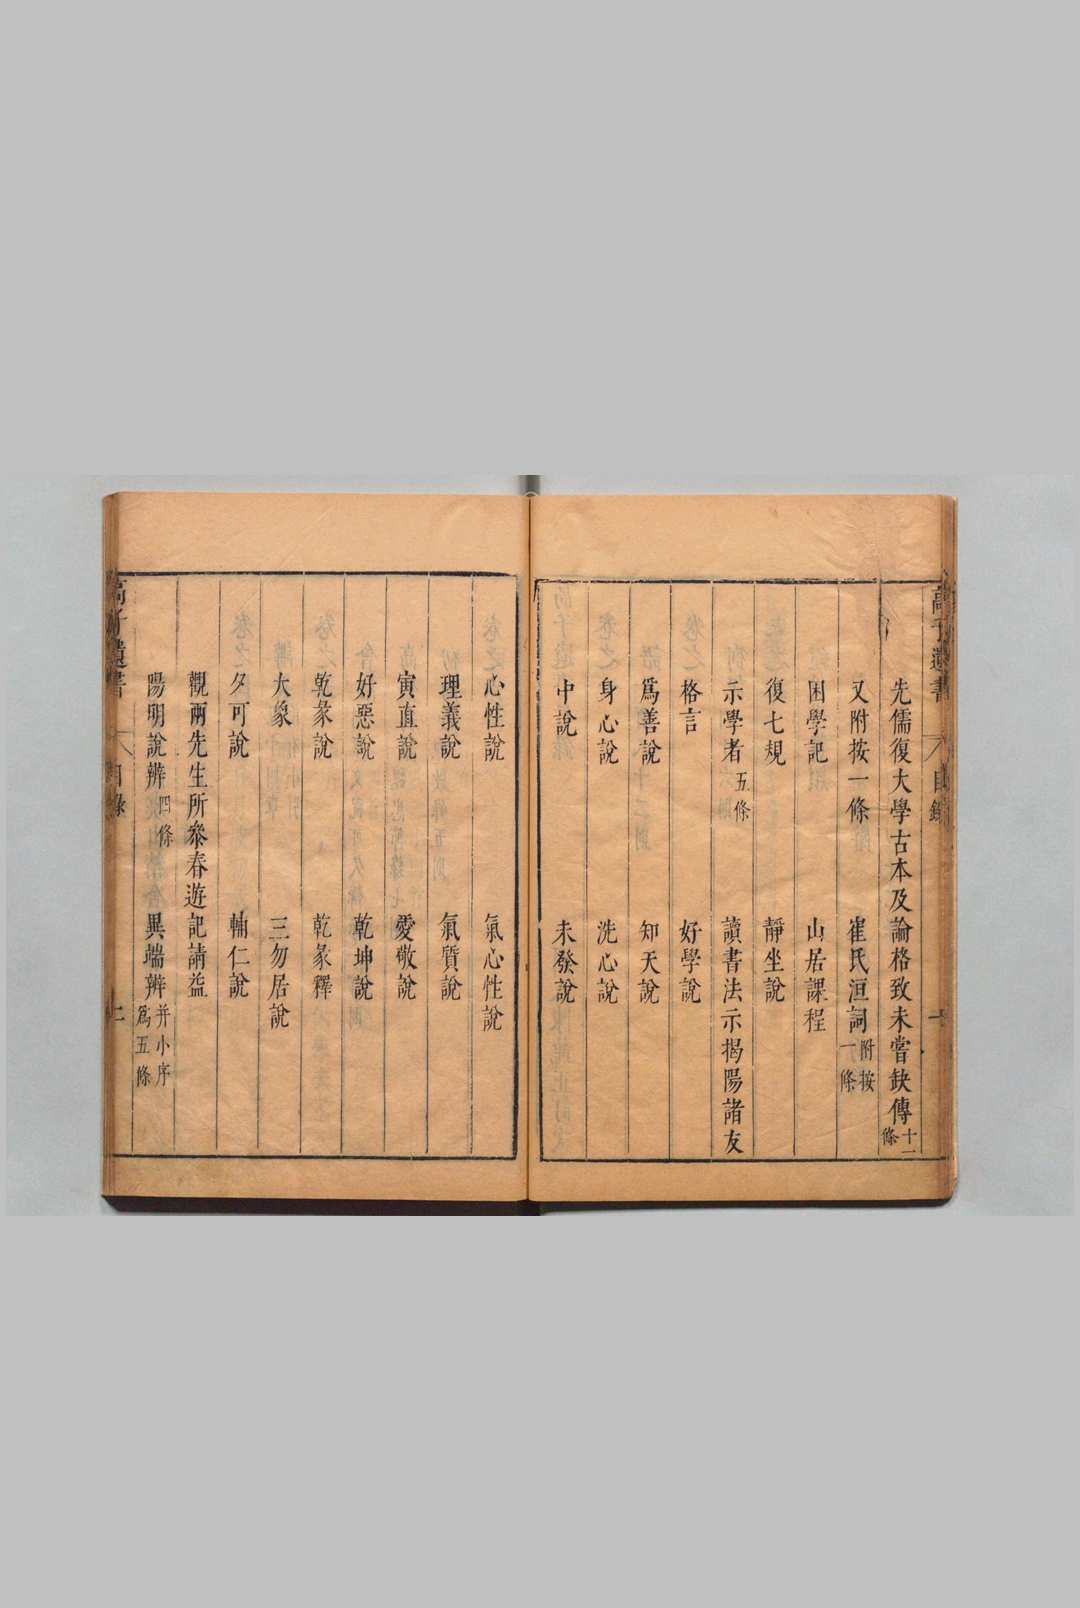 高子遺書 目錄 一
先儒復大學古本及論格致未嘗缺傳十一條
又附按一條 崔氏洹詞附按一條
困學記 山居課程
復七規 靜坐說
示學者五條 讀書法示揭陽諸友
格言 好學說
爲善說 知天說
身心說 洗心說
中說 未發說
心性說 氣心性說
理義說 氣質說
寅直說 愛敬說
好惡說 乾坤說
乾彖說 乾彖釋
大象 三勿居說
夕可說 輔仁說
觀兩先生所叅春遊記請益
陽明說辨四條 異端辨并小序爲五條
高子遺書 目錄 二